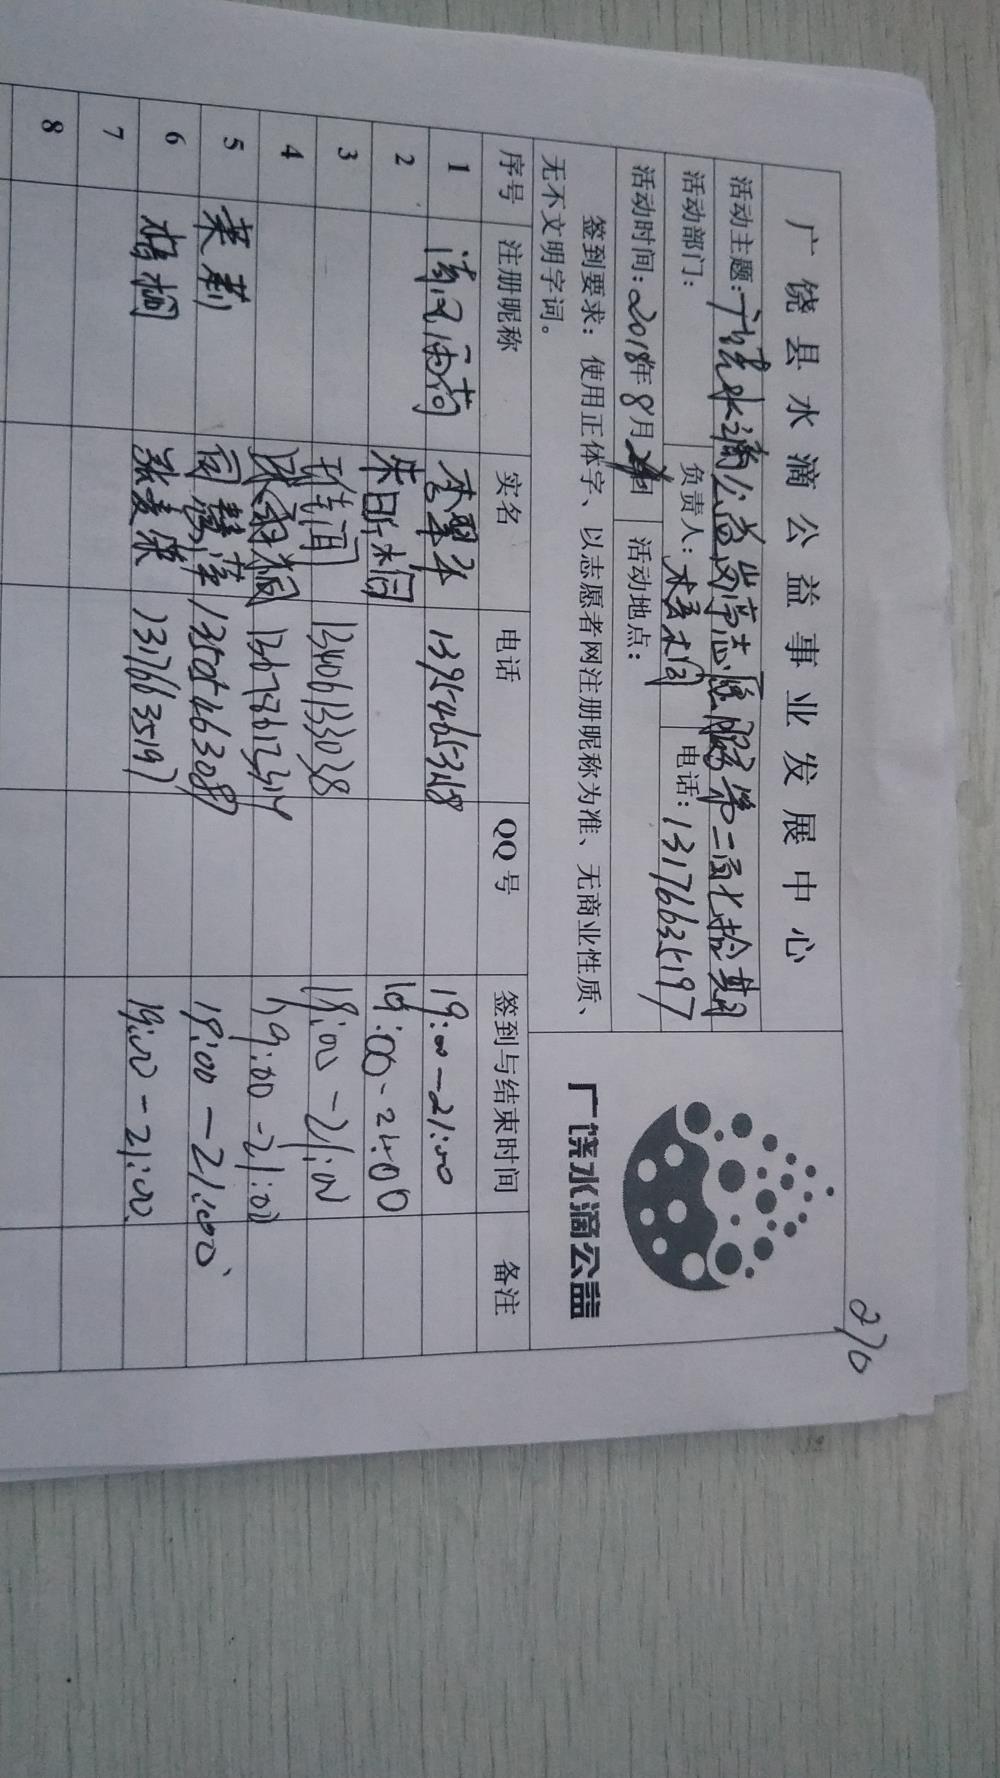 270
广饶县水滴公益事业发展中心
活动主题：广饶水滴公益岗亭志愿服务第二百七拾期
活动部门： 负责人： 电话：13176635197
活动时间：2018年8月 日 活动地点：
签到要求：使用正体字、以志愿者网注册昵称为准、无商业性质、
无不文明字词。
广饶水滴公益
序号 注册昵称 实名 电话 QQ号 签到与结束时间 备注
1 清风雨荷 李翠华 13954653218 19:00-21:00
2 朱 19:00-21:00
3 13406133038 19:00-21:00
4 19:00-21:00
5 茉莉 13505463089 19:00-21:00
6 梧桐 13176635197 19:00-21:00
7
8